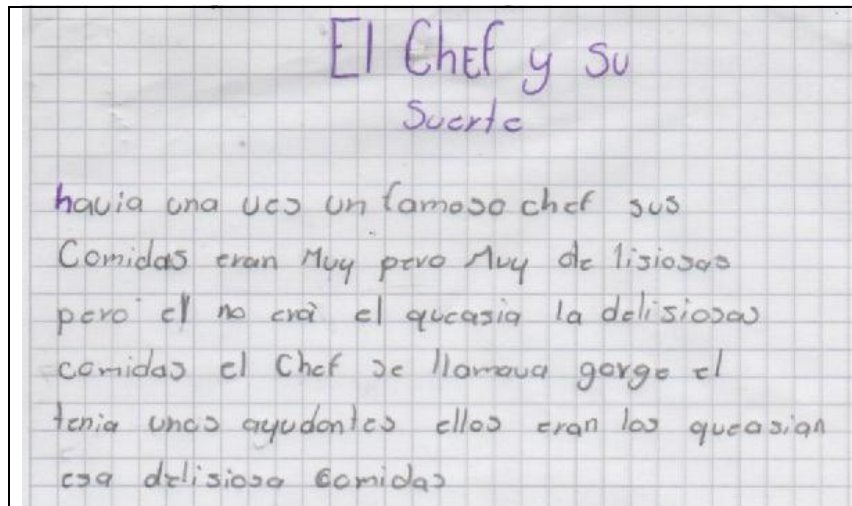 El Chef y su
Suerte
havia una ves un famoso chef sus
Comidas eran Muy pero Muy de lisiosas
pero el no erà el queasia la delisiosas
comidas el Chef se llamava gorge el
tenia unos ayudantes ellos eran los queasian
esa delisiosa Comidas